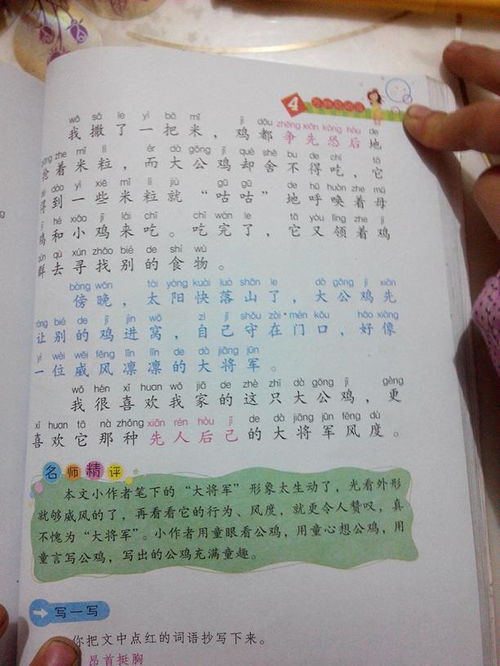 4
wǒ sǎ le yì bǎ mǐ jī dōu zhēng xiān kǒng hòu de
我撒了一把米，鸡都争先恐后地
zhe mǐ lì ér dà gōng jī què shè bu de chī tā
抢着米粒，而大公鸡却舍不得吃，它
dào yì xiē mǐ lì jiù gū gū de hū huàn zhe mǔ
得到一些米粒就“咕咕”地呼唤着母
jī hé xiǎo jī lái chī chī wán le tā yòu lǐng zhe jī
鸡和小鸡来吃。吃完了，它又领着鸡
qún qù xún zhǎo bié de shí wù
群去寻找别的食物。
bàng wǎn tài yáng kuài luò shān le dà gōng jī xiān
傍晚，太阳快落山了，大公鸡先
ràng bié de jī jìn wō zì jǐ shǒu zài mén kǒu hǎo xiàng
让别的鸡进窝，自己守在门口，好像
yí wèi wēi fēng lǐn lǐn de dà jiāng jūn
一位威风凛凛的大将军。
wǒ hěn xǐ huan wǒ jiā de zhè zhī dà gōng jī gèng
我很喜欢我家的这只大公鸡，更
xǐ huan tā nà zhǒng xiān rén hòu jǐ de dà jiāng jūn fēng dù
喜欢它那种先人后己的大将军风度。
名师精评
本文小作者笔下的“大将军”形象太生动了，光看外形
就够威风的了，再看看它的行为、风度，就更令人赞叹，真
不愧为“大将军”。小作者用童眼看公鸡，用童心想公鸡，用
童言写公鸡，写出的公鸡充满童趣。
写一写
你把文中点红的词语抄写下来。
昂首挺胸